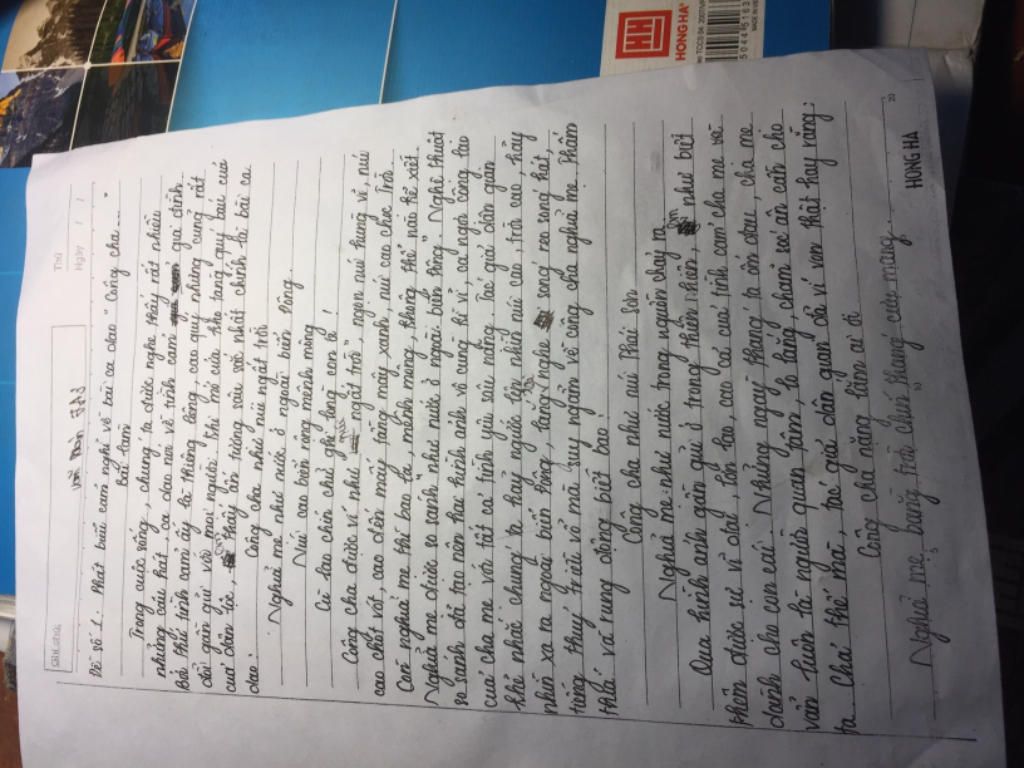 HH
HONGHA®
TCCS 04: 2007/VPP
MADE IN VIE
Thứ
Ngày / /
Ghi chú:
Đề số 1. Phát biểu cảm nghĩ về bài ca dao "Công cha....
Bài làm
Trong cuộc sống, chúng ta được nghe thấy rất nhiều
những câu hát ca dao nói về tình cảm gia đình.
Bởi thứ tình cảm ấy là thiêng liêng, cao quý nhưng cũng rất
đỗi gần gũi với mọi người. Khi mở cửa kho tàng quý báu của
của dân tộc, thấy ấn tượng sâu sắc nhất chính là bài ca
dao:
Công cha như núi ngất trời
Nghĩa mẹ như nước ở ngoài biển Đông.
Núi cao biển rộng mênh mông
Cù lao chín chữ ghi lòng con ơi!
Công cha được ví như ngất trời, ngọn núi hùng vĩ, núi
cao chót vót, cao đến mấy tầng mây xanh, núi cao chọc trời.
Còn nghĩa mẹ thì bao la, mênh mông, không thể nào kể xiết.
Nghĩa mẹ được so sánh như nước ở ngoài biển Đông". Nghệ thuật
so sánh đã tạo nên hai hình ảnh vô cùng kì vĩ, ca ngợi công lao
của cha mẹ với tất cả tình yêu sâu nặng. Tác giả dân gian
khẽ nhắc chúng ta hãy ngước lên nhìn núi cao, trời cao, hãy
nhìn xa ra ngoài biển rộng, lắng nghe sóng reo sóng hát,
từng thủy triều vỗ mà suy ngẫm về công cha nghĩa mẹ. Thấm
thía và rung động biết bao!
Công cha như núi Thái Sơn
Nghĩa mẹ như nước trong nguồn chảy ra.
Qua hình ảnh gần gũi ở trong thiên nhiên, như biết
thêm được sự vĩ đại, lớn lao, cao cả của tình cảm cha mẹ
dành cho con cái. Những ngày tháng ta ốm đau, cha mẹ
vẫn luôn là người quan tâm, lo lắng, chăm sóc ân cần cho
ta. Chả thế mà, tác giả dân gian đã ví von thật hay rằng:
Công cha nặng lắm ai ơi
Nghĩa mẹ bằng trời chín tháng cưu mang.
HONG HA